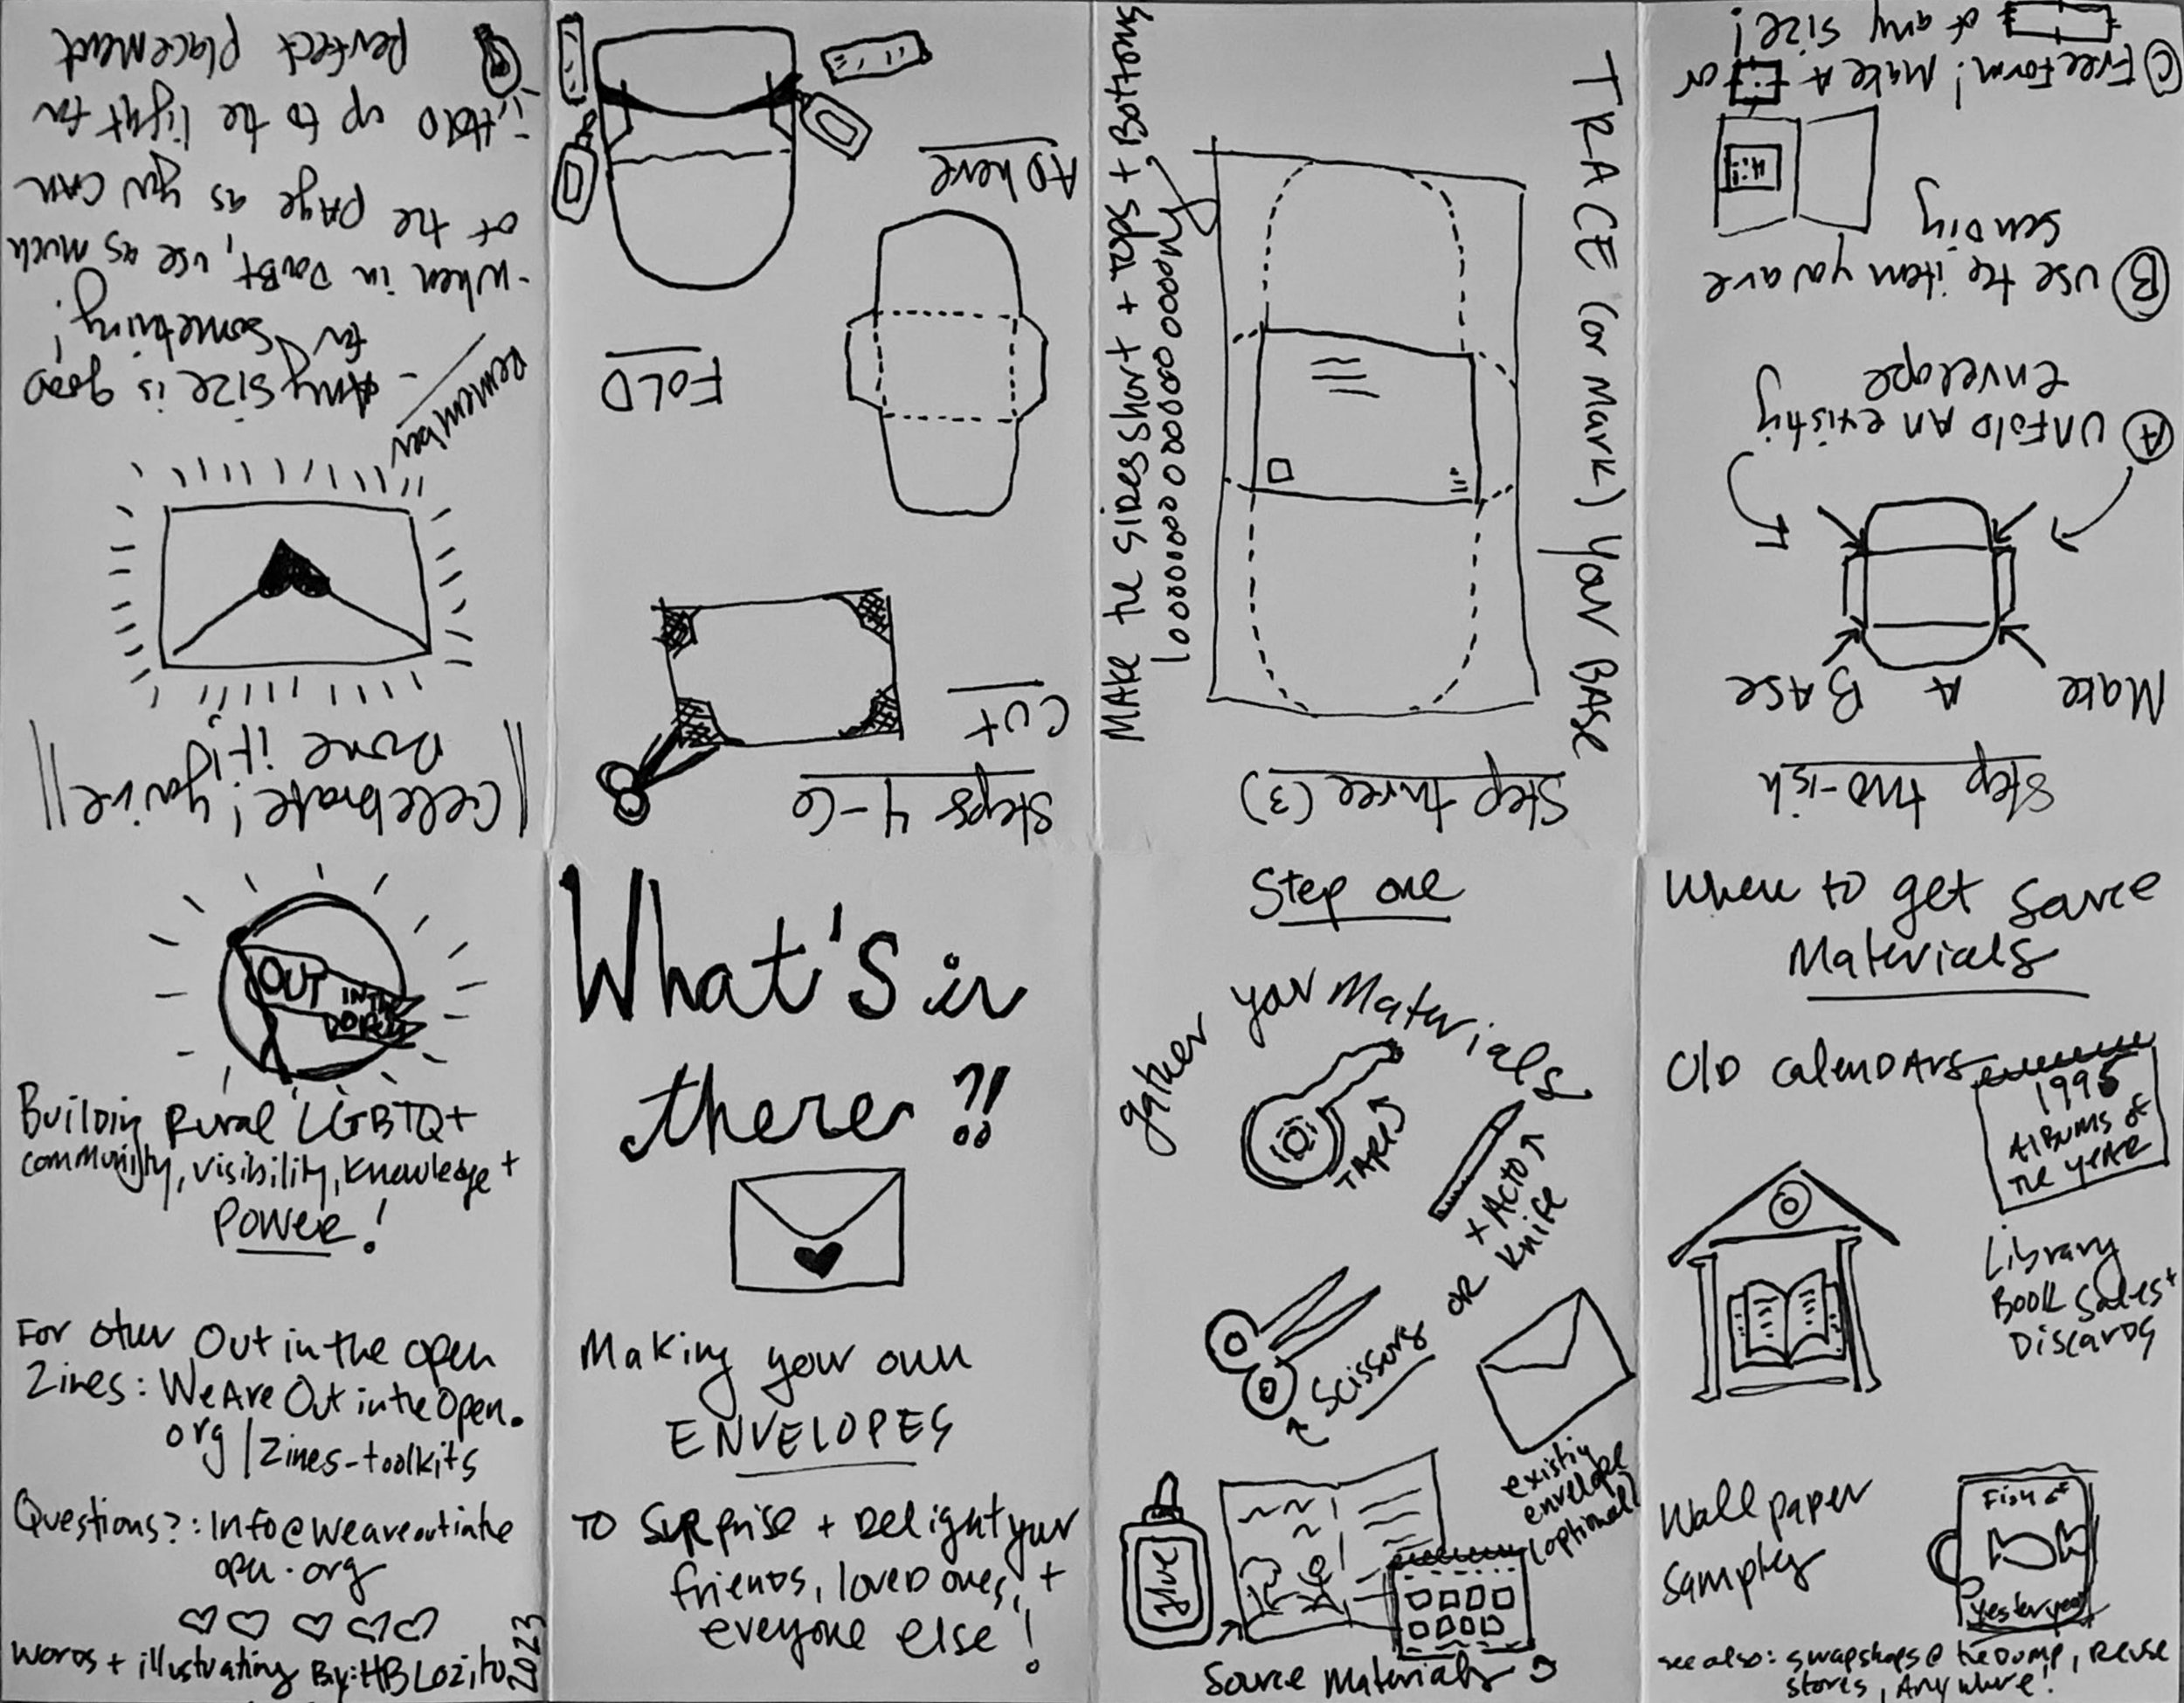 What's in
there?!
Making your own
ENVELOPES
To Surprise + Delight your
friends, loved ones, +
everyone else!
Step one
gather your Materials
TAPE
X Acto
Knife
OR
Scissors
existing
envelope
(optional)
glue
Source Materials
Where to get Source
Materials
Old Calendars
1995
Albums of
The Year
Library
Book Sales +
Discards
Wall paper
Samples
Fish of
Yesteryear
see also: swapshops @ the Dump, Reuse
stores, Anywhere!
Step two-ish
Make A Base
(A) Unfold An existing
envelope
(B) use the item you are
sending
Hi!
(C) Freeform! Make A or
of any size!
Step three (3)
TRACE (or Mark) Your BASE
Make the sides short + tops + Bottoms
looooooooooooooooooong
Steps 4-6
Cut
FOLD
Adhere
Celebrate! you're
Done if it,
remember
- Any size is good
for something!
- When in Doubt, use as much
of the page as you can
- Hold up to the light for
perfect placement
OUT IN THE
OPEN
Building Rural LGBTQ+
community, visibility, knowledge +
POWER!
For other Out in the open
Zines: WeAreOutintheOpen.
org/zines-toolkits
Questions?: Info@weareoutinthe
open.org
Words + illustrating By: HB Lozito 2023